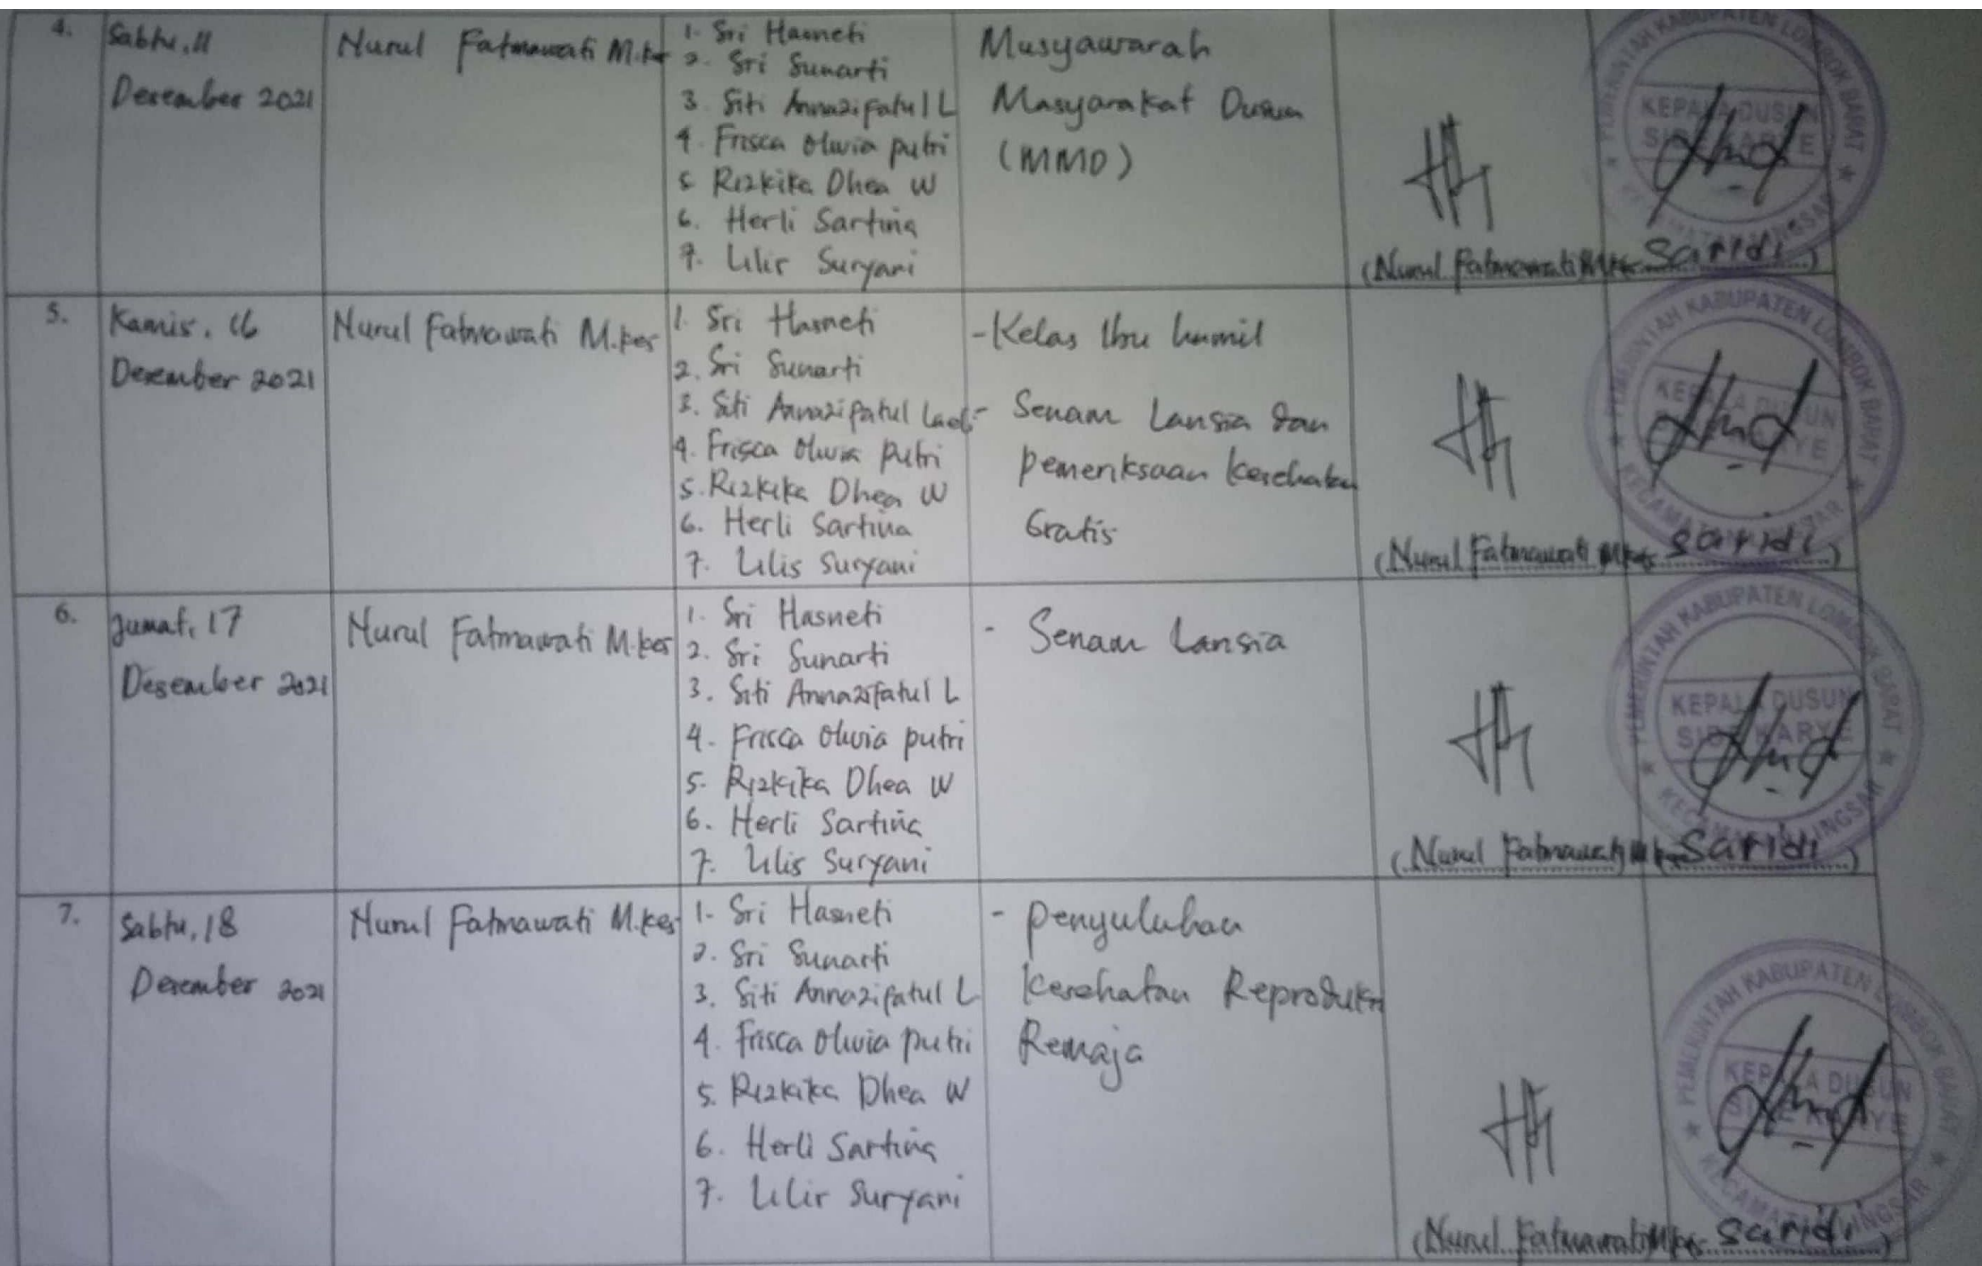 4.
Sabtu, 11
Desember 2021
Nurul Fatmawati M.kes
1. Sri Hasneti
2. Sri Sunarti
3. Siti Annazifatul L
4. Frisca Olivia putri
5. Rizkika Dhea W
6. Herli Sartina
7. Lilis Suryani
Musyawarah
Masyarakat Dusun
(MMD)
(Nurul Fatmawati M.kes
Saridi)
PEMERINTAH KABUPATEN LOMBOK BARAT
KEPALA DUSUN
SIDE KARYE
KECAMATAN LINGSAR
5.
Kamis, 16
Desember 2021
Nurul Fatmawati M.kes
1. Sri Hasneti
2. Sri Sunarti
3. Siti Annazifatul Laeli
4. Frisca Olivia Putri
5. Rizkika Dhea W
6. Herli Sartina
7. Lilis Suryani
- Kelas Ibu humil
- Senam Lansia dan
pemeriksaan kesehatan
Gratis
(Nurul Fatmawati M.kes
Saridi)
PEMERINTAH KABUPATEN LOMBOK BARAT
KEPALA DUSUN
SIDE KARYE
KECAMATAN LINGSAR
6.
Jumat, 17
Desember 2021
Nurul Fatmawati M.kes
1. Sri Hasneti
2. Sri Sunarti
3. Siti Annazifatul L
4. Frisca Olivia putri
5. Rizkika Dhea W
6. Herli Sartina
7. Lilis Suryani
- Senam Lansia
(Nurul Fatmawati M.kes
Saridi)
PEMERINTAH KABUPATEN LOMBOK BARAT
KEPALA DUSUN
SIDE KARYE
KECAMATAN LINGSAR
7.
Sabtu, 18
Desember 2021
Nurul Fatmawati M.kes
1. Sri Hasneti
2. Sri Sunarti
3. Siti Annazifatul L
4. Frisca Olivia putri
5. Rizkika Dhea W
6. Herli Sartina
7. Lilis Suryani
- Penyuluhan
Kesehatan Reproduksi
Remaja
(Nurul Fatmawati M.kes
Saridi)
PEMERINTAH KABUPATEN LOMBOK BARAT
KEPALA DUSUN
SIDE KARYE
KECAMATAN LINGSAR